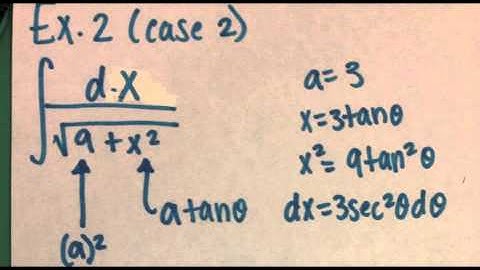 Ex. 2 (case 2)
∫ d·x / √9 + x²
(a)²
a tanθ
a = 3
x = 3tanθ
x² = 9tan²θ
dx = 3sec²θdθ